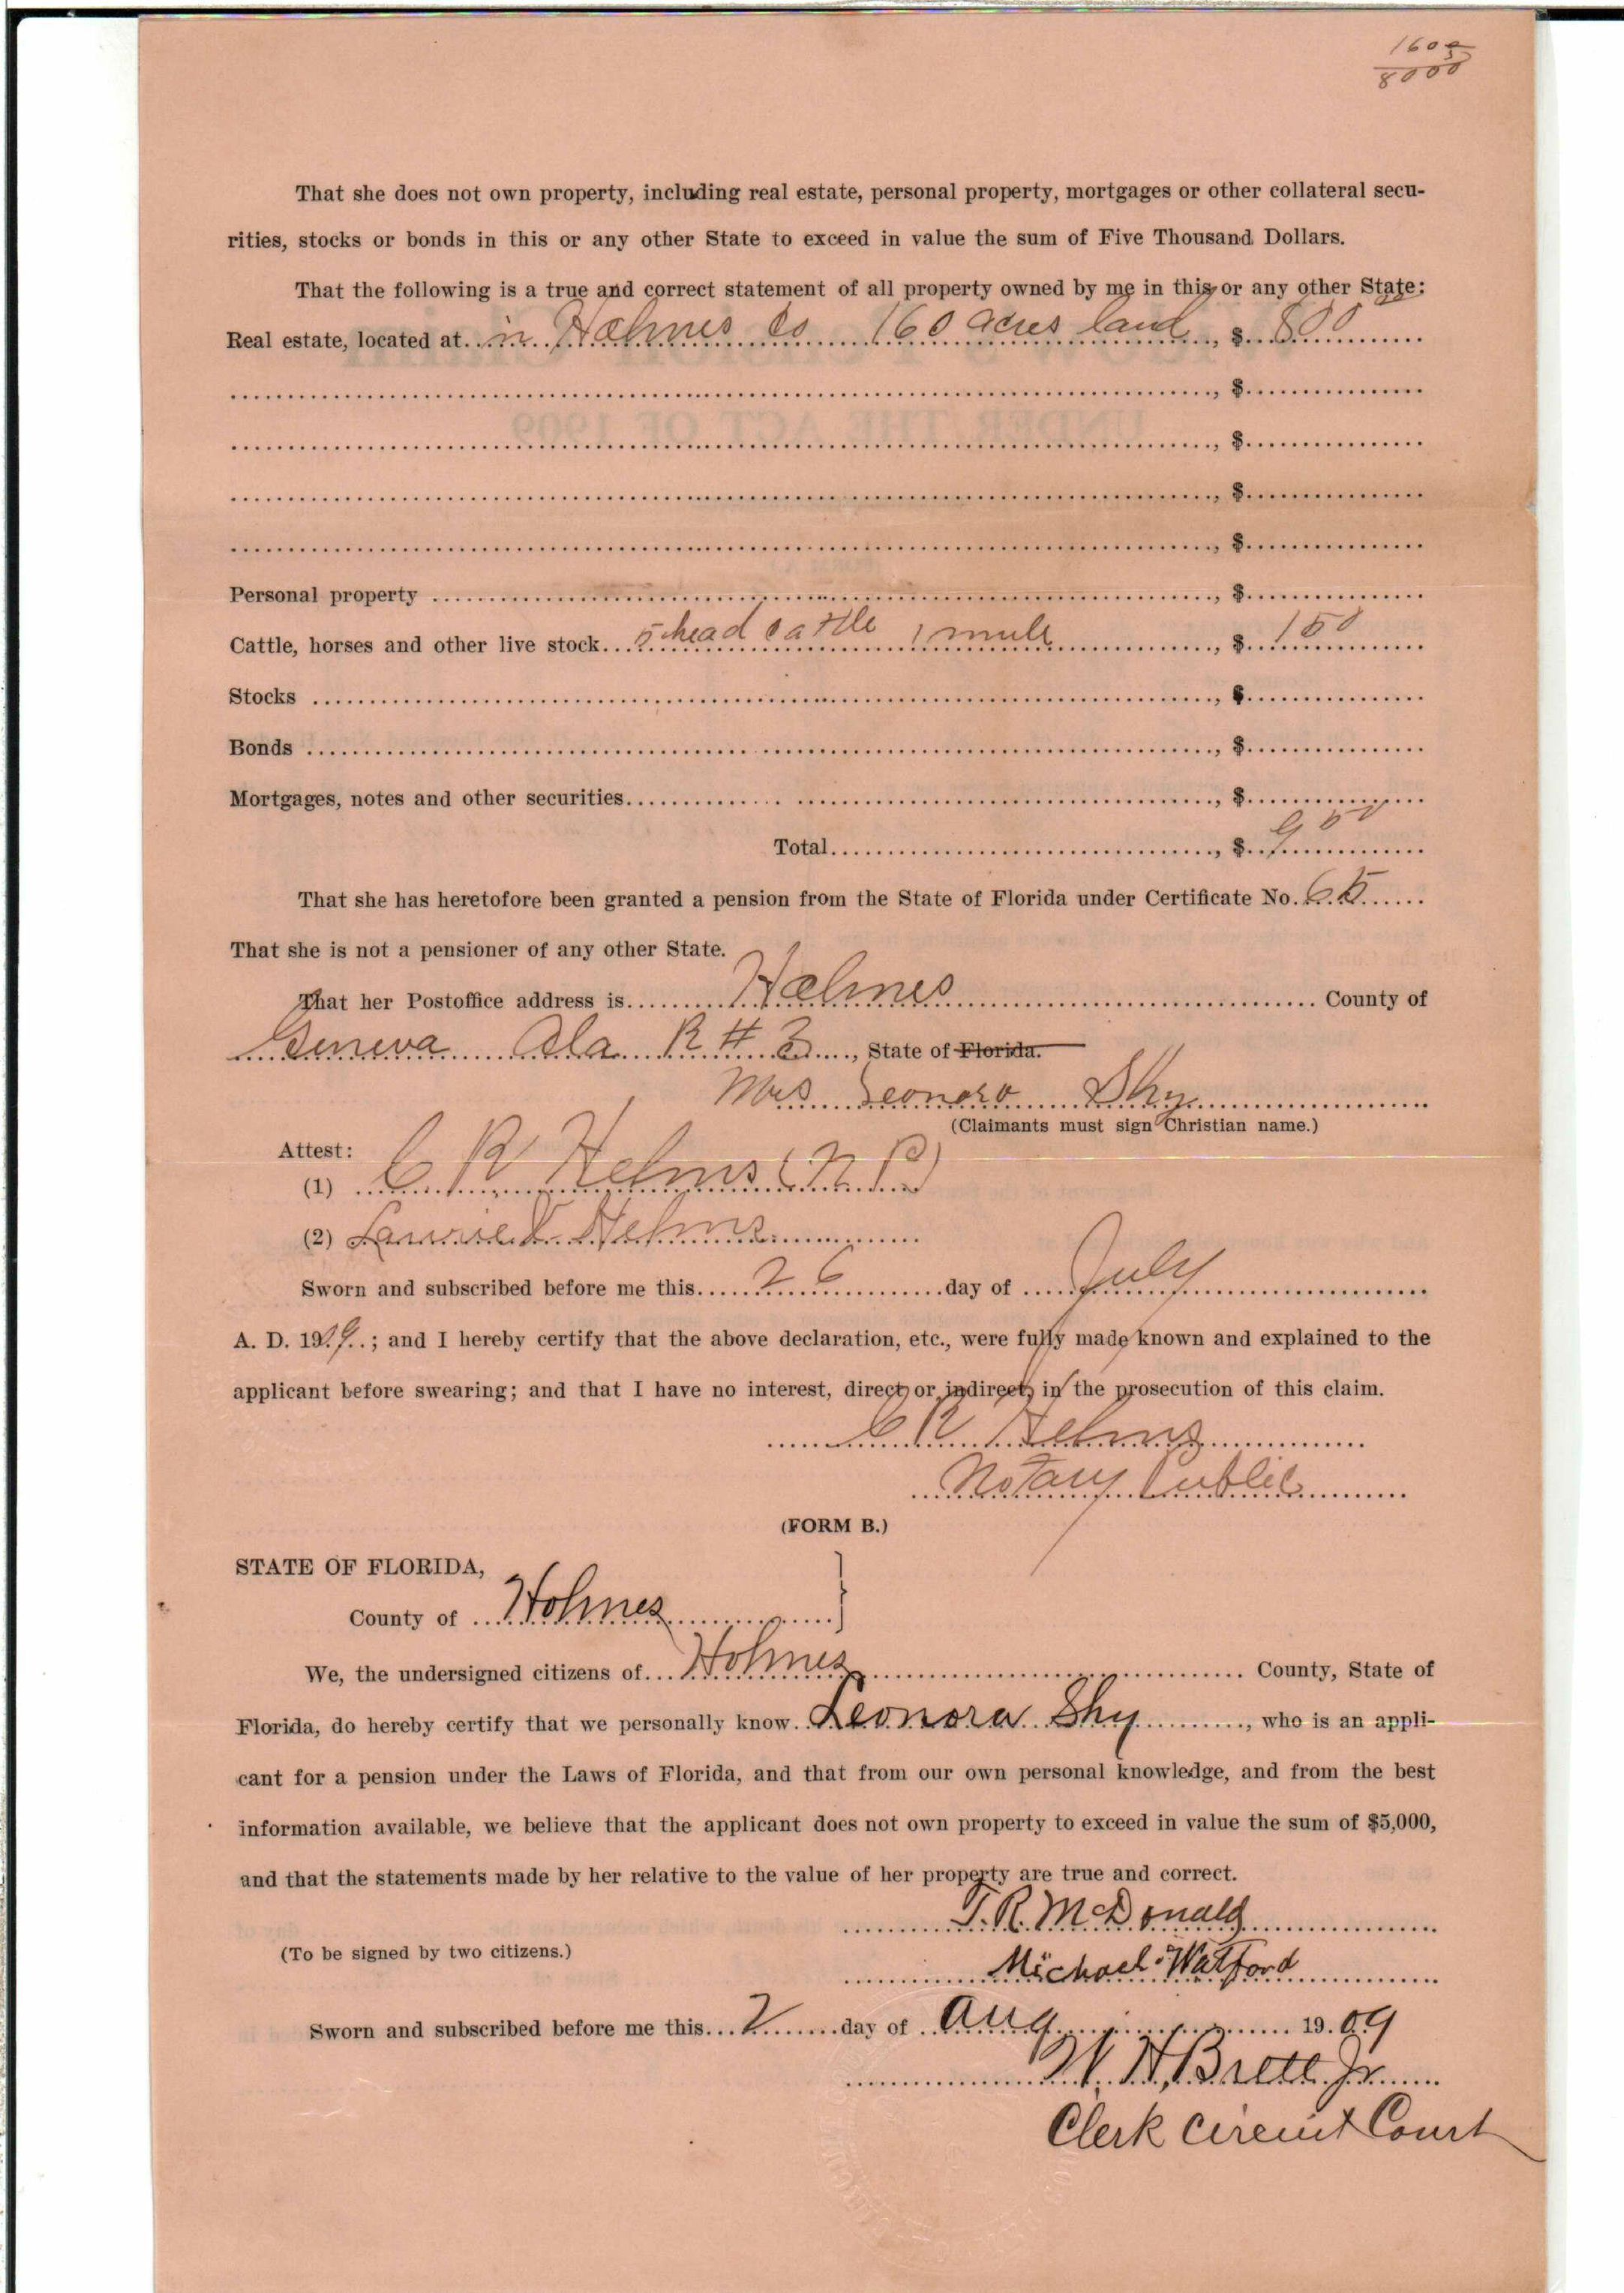 160
5
8000
That she does not own property, including real estate, personal property, mortgages or other collateral secu-
rities, stocks or bonds in this or any other State to exceed in value the sum of Five Thousand Dollars.
That the following is a true and correct statement of all property owned by me in this or any other State:
Real estate, located at in Holmes Co 160 acres land, $ 800
, $
, $
, $
, $
Personal property , $
Cattle, horses and other live stock 5 head cattle 1 mule , $ 150
Stocks , $
Bonds , $
Mortgages, notes and other securities , $
Total , $ 950
That she has heretofore been granted a pension from the State of Florida under Certificate No. 65
That she is not a pensioner of any other State.
That her Postoffice address is Holmes County of
Geneva Ala R # 3, State of Florida.
Mrs Leonora Shy
(Claimants must sign Christian name.)
Attest:
(1) C R Helms (N. P.)
(2) Helms
Sworn and subscribed before me this 26 day of July
A. D. 199; and I hereby certify that the above declaration, etc., were fully made known and explained to the
applicant before swearing; and that I have no interest, direct or indirect, in the prosecution of this claim.
C R Helms
Notary Public
(FORM B.)
STATE OF FLORIDA,
County of Holmes
We, the undersigned citizens of Holmes County, State of
Florida, do hereby certify that we personally know Leonora Shy, who is an appli-
cant for a pension under the Laws of Florida, and that from our own personal knowledge, and from the best
information available, we believe that the applicant does not own property to exceed in value the sum of $5,000,
and that the statements made by her relative to the value of her property are true and correct.
T. R. McDonald
(To be signed by two citizens.)
Michael Watford
Sworn and subscribed before me this 2 day of Aug 1909
W. H. Brett Jr.
Clerk Circuit Court